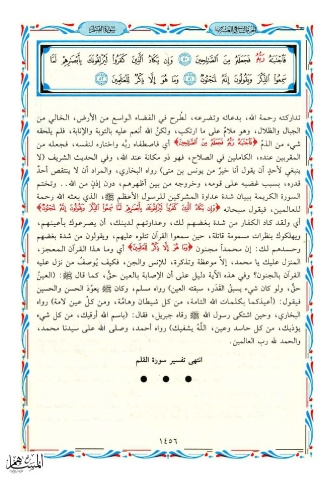 فَاجْتَبَاهُ رَبُّهُ فَجَعَلَهُ مِنَ الصَّالِحِينَ ﴿٥٠﴾ وَإِن يَكَادُ الَّذِينَ كَفَرُوا لَيُزْلِقُونَكَ بِأَبْصَارِهِمْ لَمَّا
سَمِعُوا الذِّكْرَ وَيَقُولُونَ إِنَّهُ لَمَجْنُونٌ ﴿٥١﴾ وَمَا هُوَ إِلَّا ذِكْرٌ لِّلْعَالَمِينَ ﴿٥٢﴾
تداركته رحمة الله، بدعائه وتضرعه، لطُرح في الفضاء الواسع من الأرض، الخالي من
الجبال والظلال، وهو ملامٌ على ما ارتكب، ولكنَّ الله أنعم عليه بالتوبة والإنابة، فلم يلحقه
شيء من الذمِّ ﴿فَاجْتَبَاهُ رَبُّهُ فَجَعَلَهُ مِنَ الصَّالِحِينَ﴾ أي فاصطفاه ربُّه واختاره لنفسه، فجعله من
المقربين عنده، الكاملين في الصلاح، فهو ذو مكانة عند الله، وفي الحديث الشريف (لا
ينبغي لأحدٍ أن يقول أنا خيرٌ من يونس بن متى) رواه البخاري، والمراد أن لا ينتقص أحدٌ
قدره، بسبب غضبه على قومه، وخروجه من بين أظهرهم، دون إذنٍ من الله.. وتختم
السورة الكريمة ببيان شدة عداوة المشركين للرسول الأعظم ﷺ، الذي بعثه الله رحمة
للعالمين، فيقول سبحانه ﴿وَإِن يَكَادُ الَّذِينَ كَفَرُوا لَيُزْلِقُونَكَ بِأَبْصَارِهِمْ لَمَّا سَمِعُوا الذِّكْرَ وَيَقُولُونَ إِنَّهُ لَمَجْنُونٌ﴾
أي ولقد كاد الكفار من شدة بغضهم لك، وعداوتهم لدينك، أن يصرعوك بأعينهم،
ويهلكوك بنظرات مسمومة قاتلة، حين سمعوا القرآن تتلوه عليهم، ويقولون من شدة بغضهم
وحسدهم لك: إن محمداً مجنون ﴿وَمَا هُوَ إِلَّا ذِكْرٌ لِّلْعَالَمِينَ﴾ أي وما هذا القرآن المعجز،
المنزل عليك يا محمد، إلاَّ موعظة وتذكرة، للإنس والجن، فكيف يُوصفُ من نزل عليه
القرآن بالجنون؟ وفي هذه الآية دليل على أن الإصابة بالعين حقٌّ، كما قال ﷺ: (العينُ
حقٌّ، ولو كان شيء يسبقُ القَدَر، سبقته العين) رواه مسلم، وكان ﷺ يعوِّذ الحسن والحسين
فيقول: (أُعيذكما بكلمات الله التامة، من كل شيطان وهامَّة، ومن كلِّ عينٍ لامة) رواه
البخاري، وحين اشتكى رسول الله ﷺ وقاه جبريل، فقال: (باسم الله أرقيك، من كل شيء
يؤذيك، من كل حاسد وعين، اللَّهُ يشفيك) رواه أحمد، وصلى الله على سيدنا محمد،
والحمد لله رب العالمين.
انتهى تفسير سورة القلم
١٤٥٦